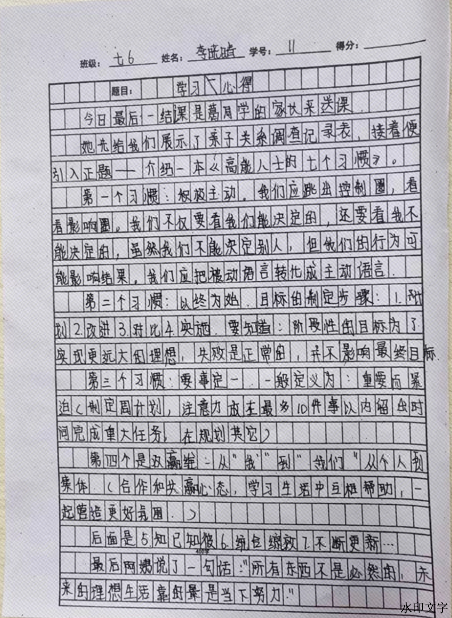 班级：七6 姓名：李晓晴 学号：11 得分：
题目： 学习心得
今日最后一结课是葛周学的家长来送课.
她先给我们展示了亲子关系调查记录表，接着便
引入正题——介绍一本《高能人士的七个习惯》。
第一个习惯：积极主动，我们应跳出控制圈，看
看影响圈。我们不仅要看我们能决定的，还要看我不
能决定的，虽然我们不能决定别人，但我们的行为可
能影响结果。我们应把被动语言转化成主动语言.
第二个习惯：以终为始.目标的制定步骤：1.
划2.改进3.对比4.实施.要知道：阶段性的目标为了
实现更远大的理想，失败是正常的，并不影响最终目标.
第三个习惯：要事定一.一般定义为：重要而紧
迫(制定周计划，注意力放在最多10件事以内留出时
间完成重大任务，在规划其它)
第四个是双赢 ：从“我”到“我们”从个人到
集体.(合作和共赢心态，学习生活中互相帮助，一
起营造更好氛围.)
后面是5.知已知彼6.统合综效7.不断更新…
最后阿姨说了一句话：“所有东西不是必然的，未
来的理想生活靠的是当下努力.”
水印文字